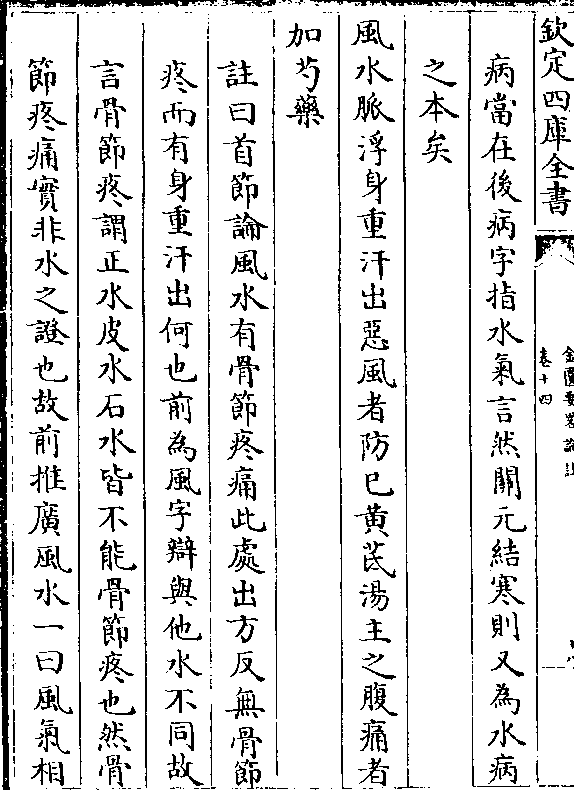 欽定四庫全書
金匱要略論註
卷十四
病當在後病字指水氣言然關元結寒則又為水病
之本矣
風水脈浮身重汗出惡風者防已黃芪湯主之腹痛者
加芍藥
註曰首節論風水有骨節疼痛此處出方反無骨節
疼而有身重汗出何也前為風字辯與他水不同故
言骨節疼謂正水皮水石水皆不能骨節疼也然骨
節疼痛實非水之證也故前推廣風水一曰風氣相